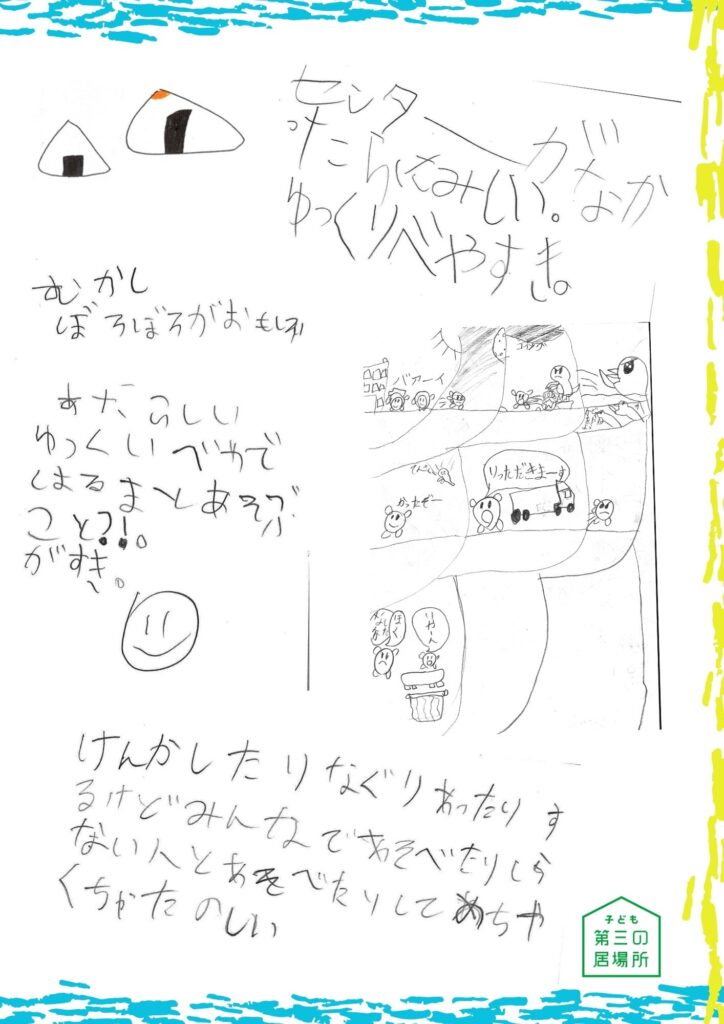 センターがなか
ゆっくりべやすき。
むかし
ぼろぼろがおもしろい
あたらしい
ゆっくいべやで
はるまとあそぶ
こと?!。
がすき。
バァーイ
りっただきまーす
かったぞー
ぼく
いやーん
けんかしたりなぐりあったりす
るけどみんなであそべたりしら
ない人とあそべたりしてめちゃ
くちゃたのしい
子ども
第三の
居場所